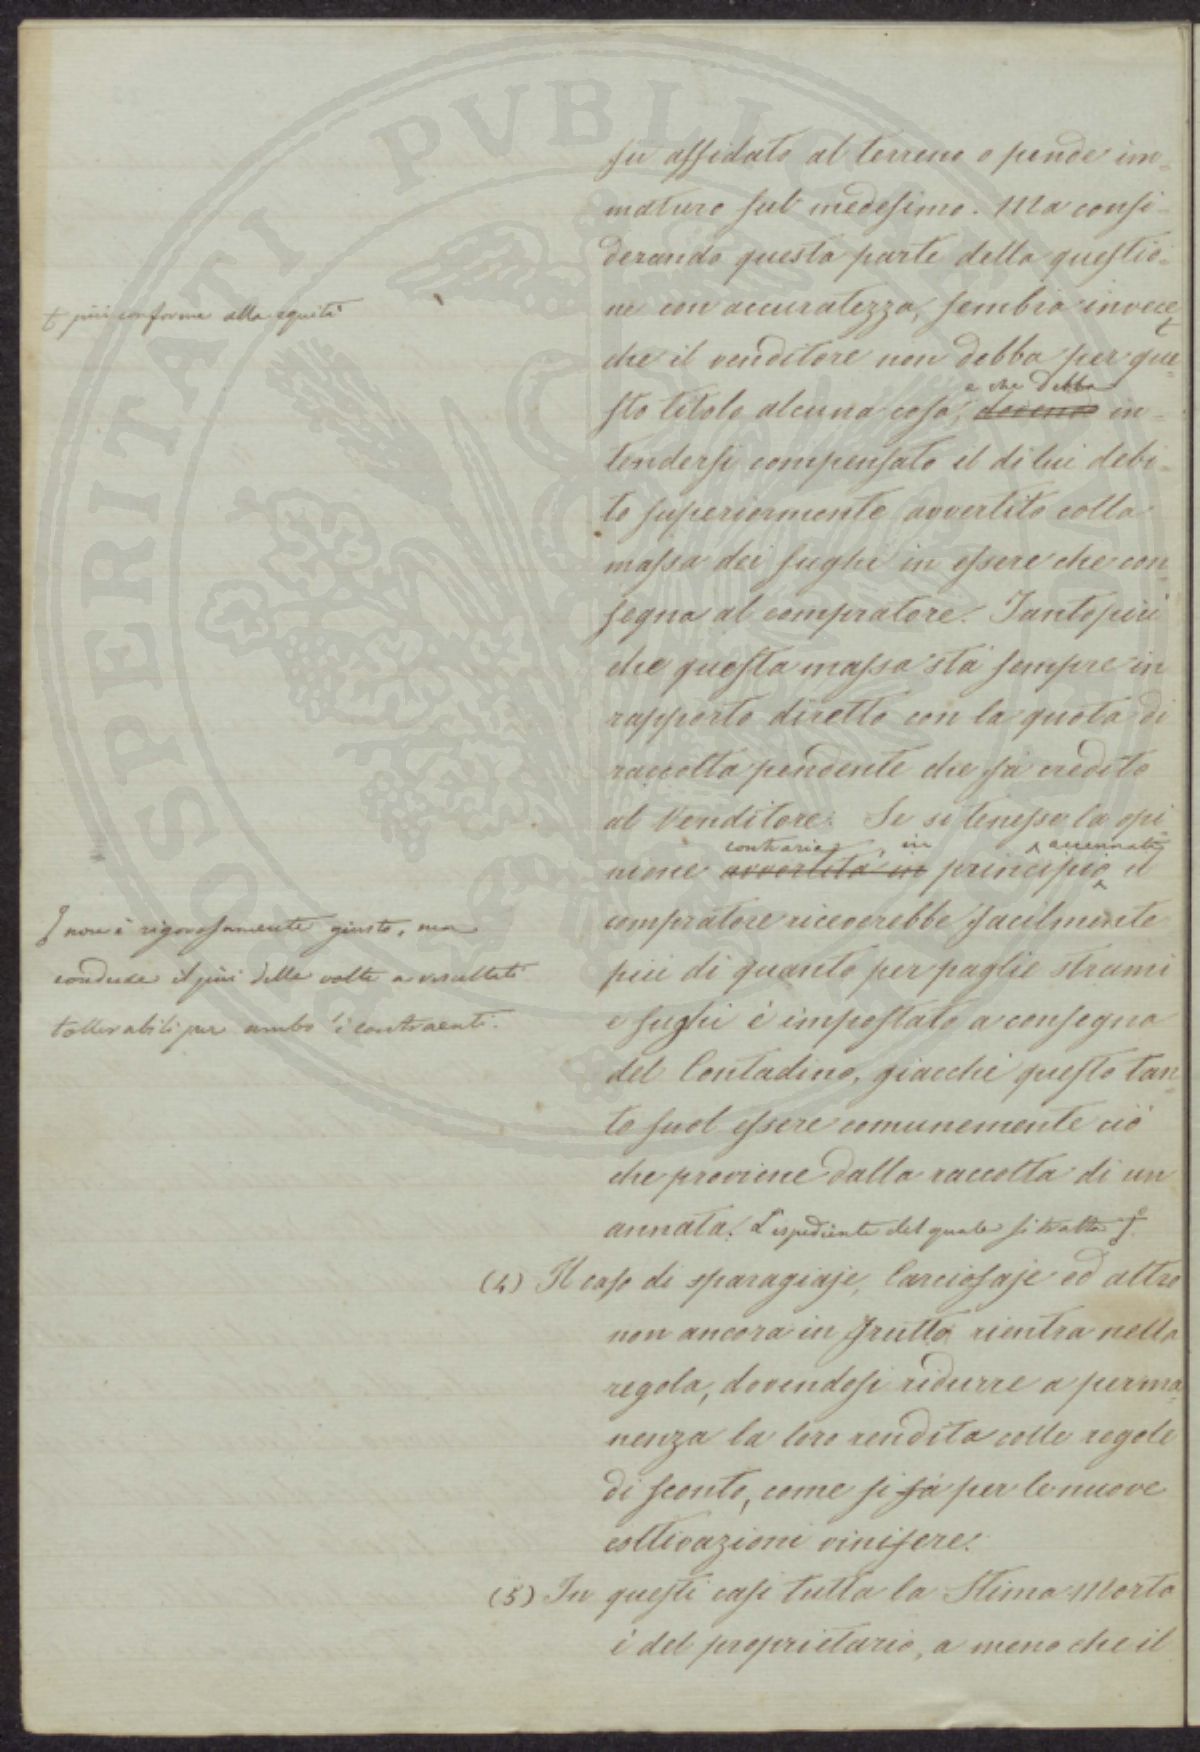 fu affidato al terreno o pende im-
maturo sul medesimo. Ma consi-
derando questa parte della questio-
ne con accuratezza, sembra invece
ŧ più conforme alla equità
che il venditore non debba per que-
sto titolo alcuna cosa, e che debba in-
tendersi compensato il di lui debi-
to superiormente avvertito colla
massa dei sughi in essere che con-
segna al compratore. Tantopiù
che questa massa stà sempre in
rapporto diretto con la quota di
raccolta pendente che fà credito
al Venditore. Se si tenesse la opi
nione contraria, in principio accennata il
avvertita in
compratore riceverebbe facilmente
più di quanto per paglie strami
e sughi è impostato a consegna
del Contadino, giacchè questo tan-
to suol essere comunemente ciò
che proviene dalla raccolta di un
annata. L'espediente del quale si tratta
non è rigorosamente giusto, ma
conduce il più delle volte a resultati
tollerabili per ambo i contraenti.
(4) Il caso di sparagiaje, Carciofaje ed altro
non ancora in frutto rientra nella
regola, dovendosi ridurre a perma-
nenza la loro rendita colle regole
di sconto, come si fà per le nuove
coltivazioni vinifere.
(5) In questi casi tutta la Stima Morta
è del proprietario, a meno che il
PROSPERITATI PVBLICAE